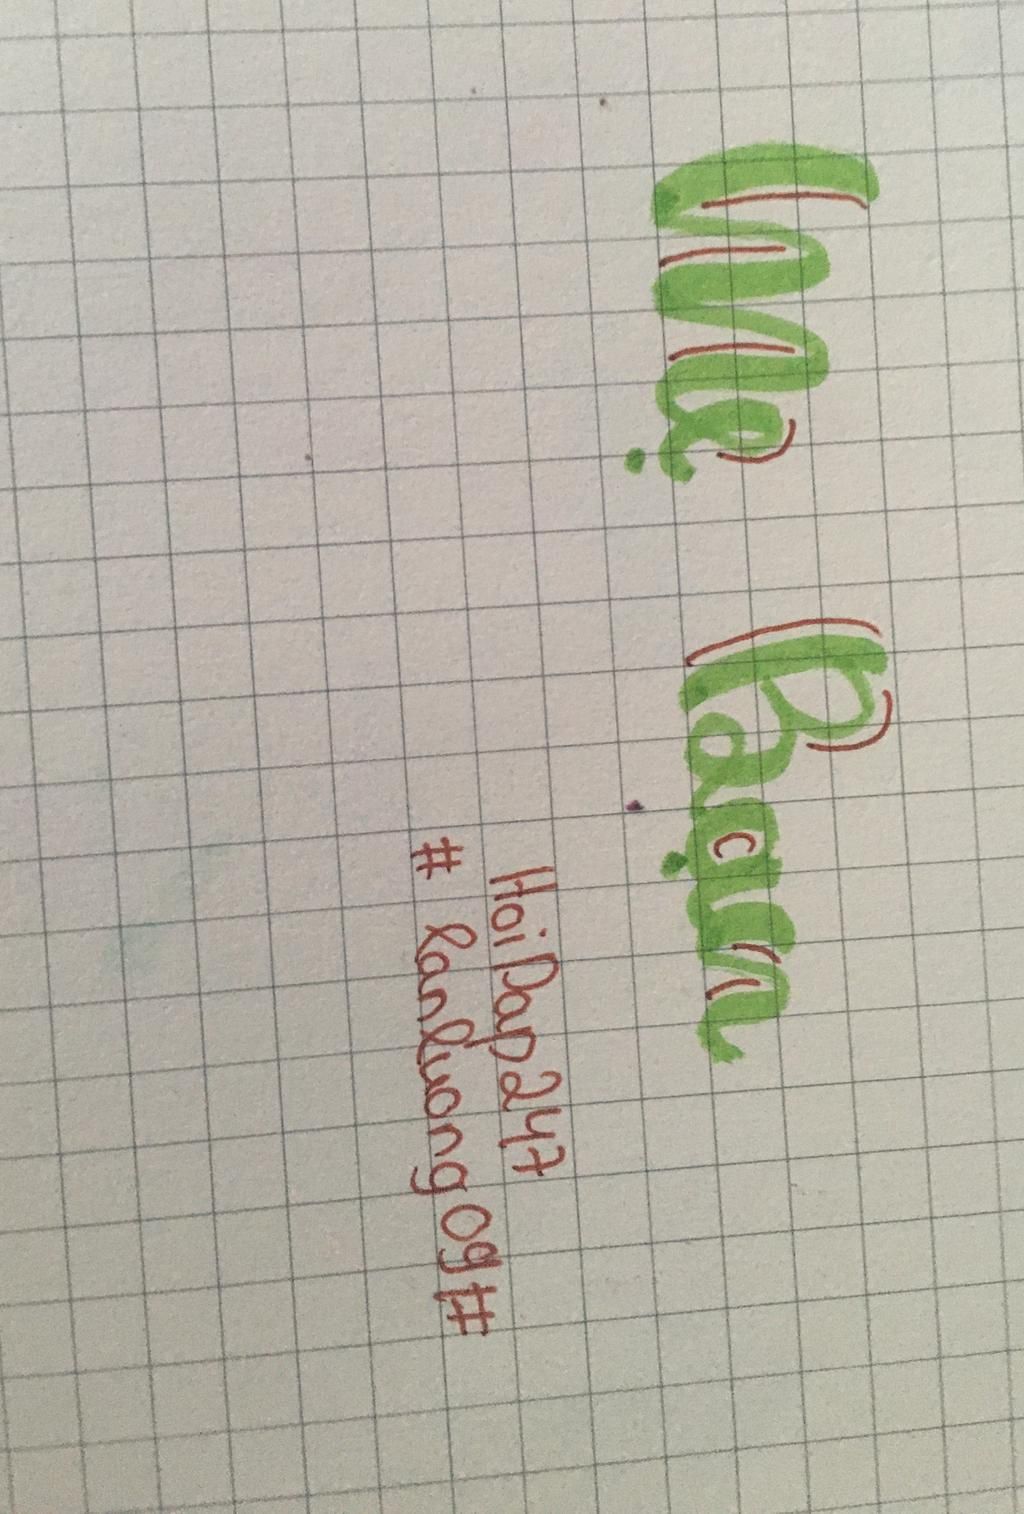 Mẹ Bạn
HoiDap247
# lanluong09#